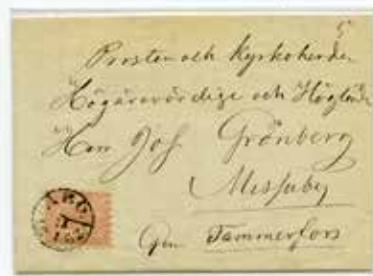 Prosten och Kyrkoherden
Högärevördige och Höglärde
Herr Joh. Grönberg
Messuby
Tammerfors